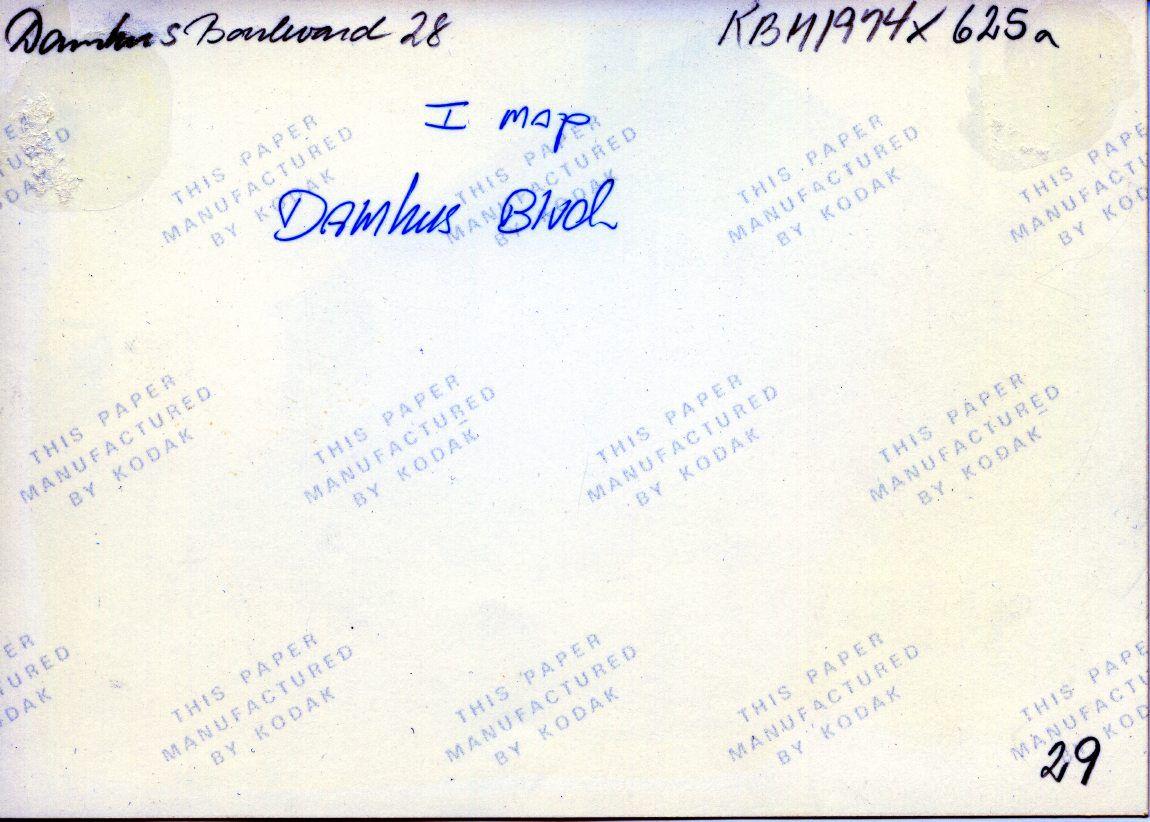 Damhus Boulevard 28
KBH1974X 625a
I map
Damhus Blvd
THIS PAPER
MANUFACTURED
BY KODAK
THIS PAPER
MANUFACTURED
BY KODAK
THIS PAPER
MANUFACTURED
BY KODAK
THIS PAPER
MANUFACTURED
BY KODAK
THIS PAPER
MANUFACTURED
BY KODAK
THIS PAPER
MANUFACTURED
BY KODAK
THIS PAPER
MANUFACTURED
BY KODAK
THIS PAPER
MANUFACTURED
BY KODAK
THIS PAPER
MANUFACTURED
BY KODAK
THIS PAPER
MANUFACTURED
BY KODAK
THIS PAPER
MANUFACTURED
BY KODAK
29